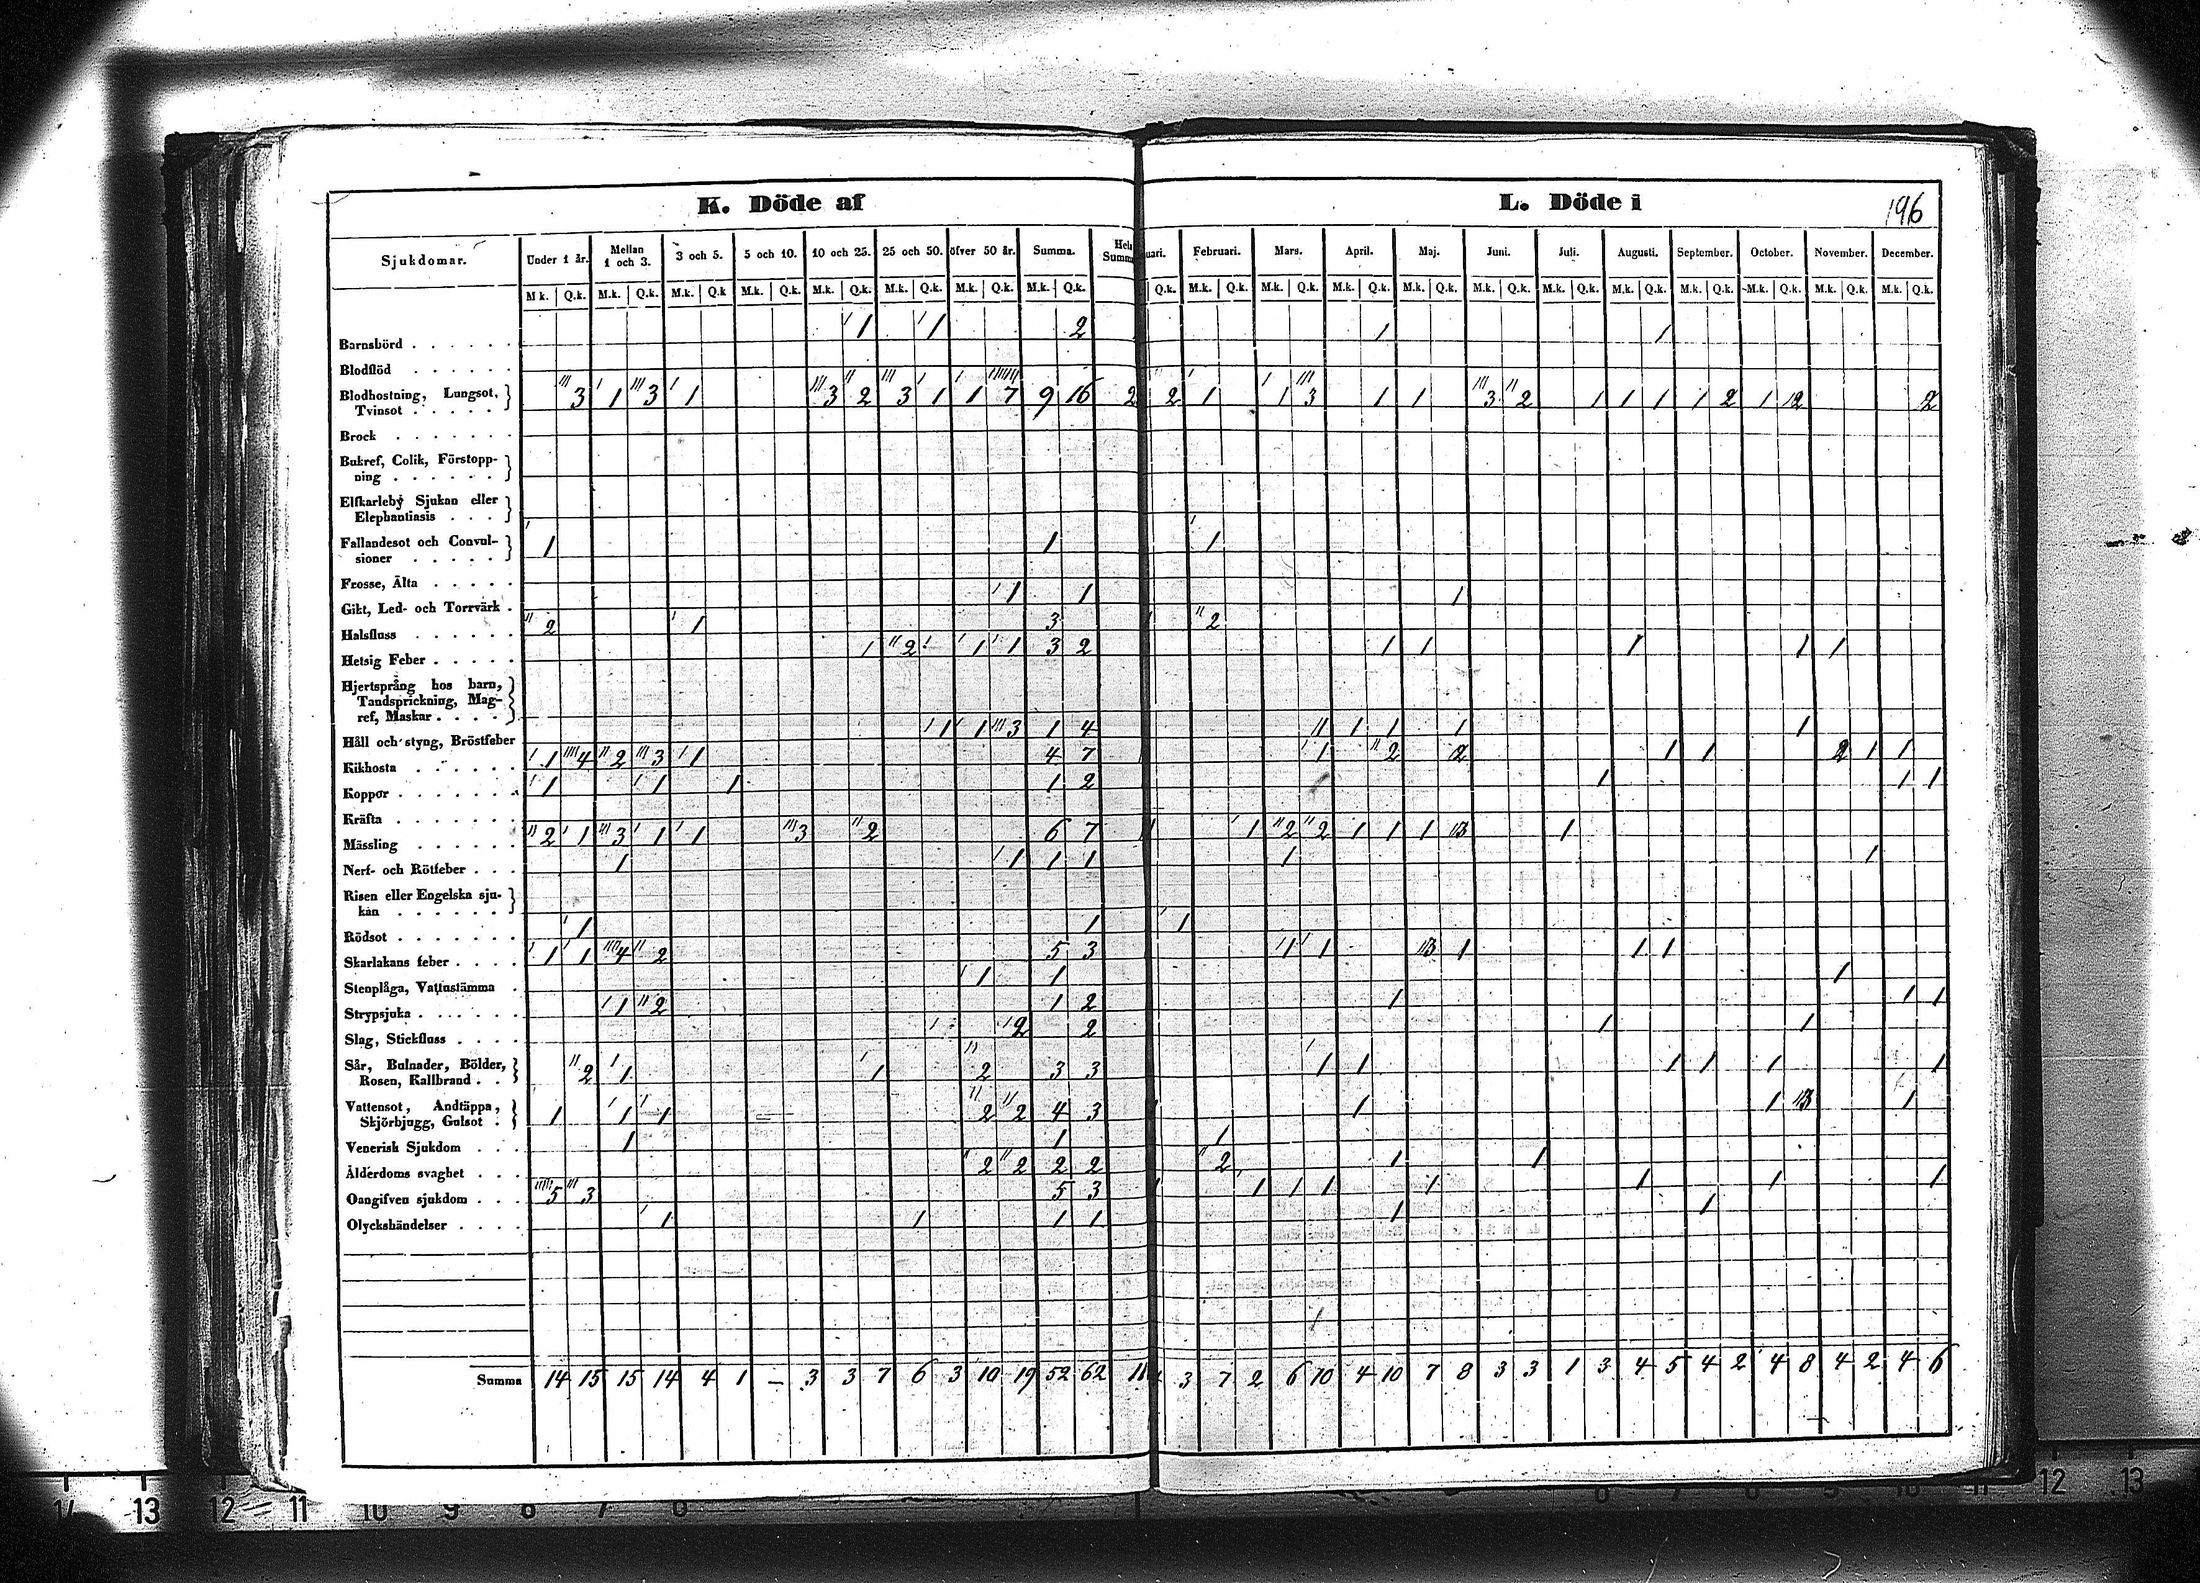 K. Döde af L. Döde i 196
Sjukdomar. Under 1 år. Mellan 1 och 3. 3 och 5. 5 och 10. 10 och 25. 25 och 50. öfver 50 år. Summa. Hela Summa uari. Februari. Mars. April. Maj. Juni. Juli. Augusti. September. October. November. December.
M.k. Q.k. M.k. Q.k. M.k. Q.k M.k. Q.k. M.k. Q.k. M.k. Q.k. M.k. Q.k. M.k. Q.k. Q.k. M.k. Q.k. M.k. Q.k. M.k. Q.k. M.k. Q.k. M.k. Q.k. M.k. Q.k. M.k. Q.k. M.k. Q.k. M.k. Q.k. M.k. Q.k. M.k. Q.k.
Barnsbörd 1 1 2 1 1
Blodflöd
Blodhostning, Lungsot,
Tvinsot 3 1 3 1 3 2 3 1 1 7 9 16 2 2 1 1 3 1 1 3 2 1 1 1 1 2 1 2 2
Brock
Bukref, Colik, Förstopp-
ning
Elfkarleby Sjukan eller
Elephantiasis
Fallandesot och Convul-
sioner 1 1 1
Frosse, Älta
Gikt, Led- och Torrvärk 1 1 1
Halsfluss 2 1 3 2
Hetsig Feber 1 2 1 1 3 2 1 1 1 1 1
Hjertsprång hos barn,
Tandsprickning, Mag-
ref, Maskar
Håll och styng, Bröstfeber 1 1 3 1 4 11 1 1 1 1
Kikhosta 1 4 2 3 1 4 7 1 2 2 1 1 2 1 1
Koppor 1 1 1 1 2 1 1 1
Kräfta
Mässling 2 1 3 1 1 3 2 6 7 1 2 2 1 1 1 3 1
Nerf- och Rötfeber 1 1 1 1 1 1
Risen eller Engelska sju-
kan
Rödsot 1 1 1
Skarlakans feber 1 1 4 2 5 3 1 1 3 1 1 1
Stenplåga, Vattustämma 1 1 1
Strypsjuka 1 2 1 2 1 1 1
Slag, Stickfluss 2 2 1 1
Sår, Bulnader, Bölder,
Rosen, Kallbrand 2 1 1 2 3 3 1 1 1 1 1 1
Vattensot, Andtäppa,
Skjörbjugg, Gulsot 1 1 1 2 2 4 3 1 1 3 1
Venerisk Sjukdom 1 1 1
Ålderdoms svaghet 2 2 2 2 2 1 1
Oangifven sjukdom 5 3 5 3 1 1 1 1 1 1 1
Olyckshändelser 1 1 1 1 1 1
Summa 14 15 15 14 4 1 – 3 3 7 6 3 10 19 52 62 3 7 2 6 10 4 10 7 8 3 3 1 3 4 5 4 2 4 8 4 2 4 6
14 13 12 11 10 9 8 7 6 12 13